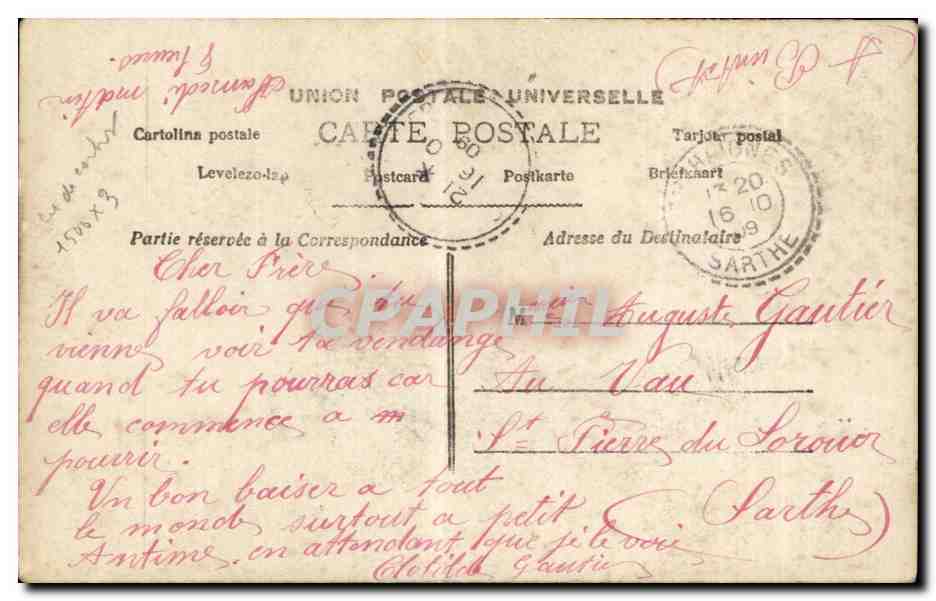 Samedi matin
8 heures
A Gautier
UNION POSTALE UNIVERSELLE
CARTE POSTALE
Cartolina postale
Tarjour postal
Levelezo-lap
Postcard
Postkarte
Briefkaart
1500 x 3
13 20
16 10
09
SARTHE
16
09
Partie réservée à la Correspondance
Adresse du Destinataire
Cher Frère
Il va falloir que tu
vienne voir ta vendange
quand tu pourras car
elle commence a m
pourrir.
Un bon baiser a tout
le monde surtout a petit
Antime en attendant que je le voie
Clotilde Gautier
CPAPHIL
Mr Auguste Gautier
Au Vau
St Pierre du Lorouër
(Sarthe)